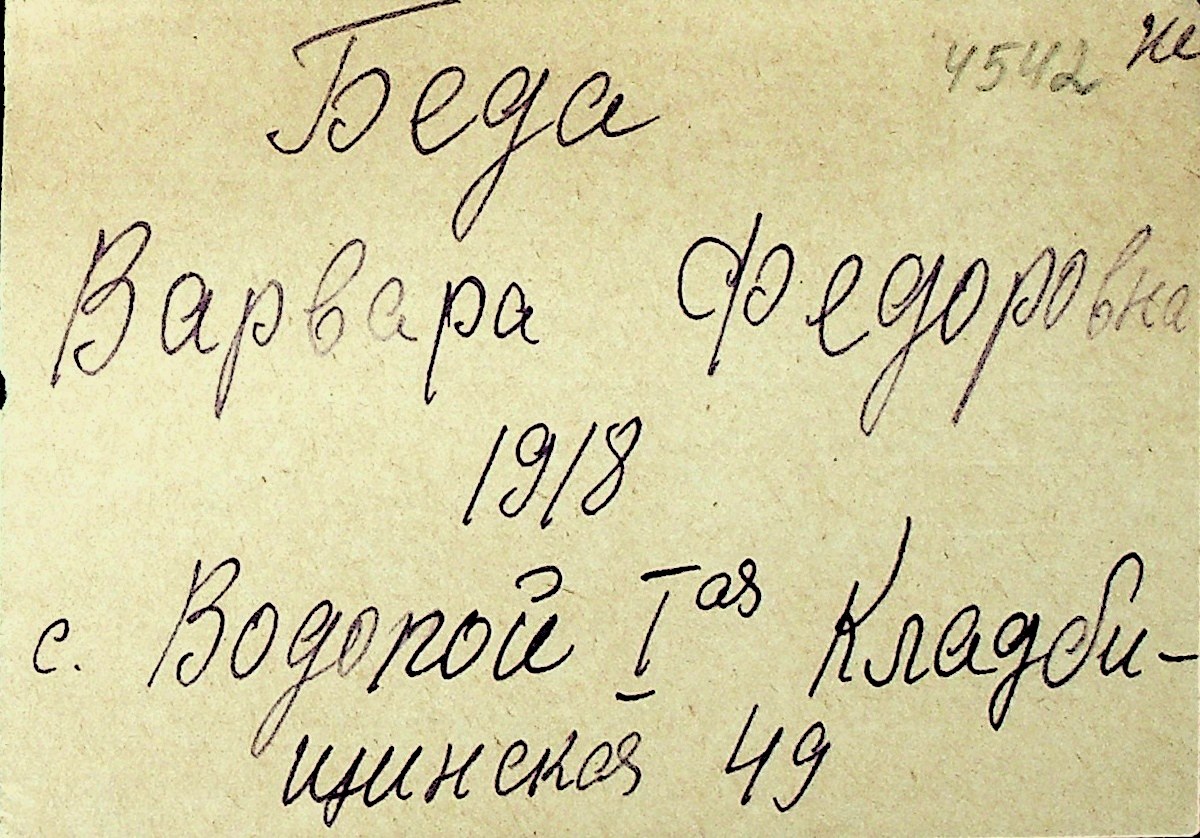 4542 же
Беда
Варвара Федоровна
1918
с. Водопой Iая Кладби-
щинская 49